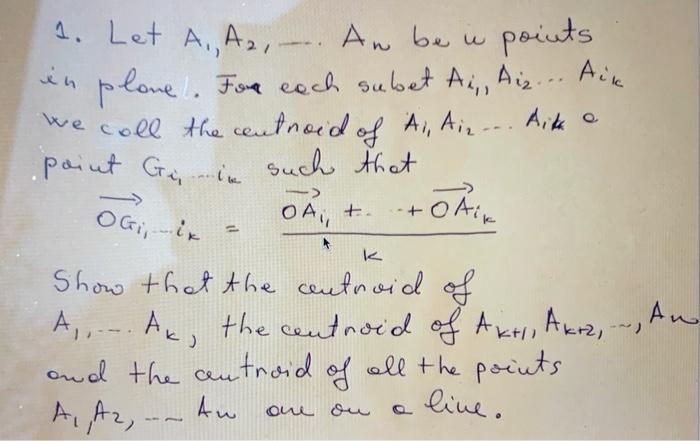 1. Let A₁, A₂, ... Aₙ be n points
in plane. For each subet Aᵢ₁, Aᵢ₂ ... Aᵢₖ
we call the centroid of Aᵢ₁ Aᵢ₂ ... Aᵢₖ a
point Gᵢ₁...ᵢₖ such that
OGᵢ₁...ᵢₖ = (OAᵢ₁ + ... + OAᵢₖ) / k
Show that the centroid of
A₁, ... Aₖ, the centroid of Aₖ₊₁, Aₖ₊₂, ..., Aₙ
and the centroid of all the points
A₁, A₂, ... Aₙ are on a line.